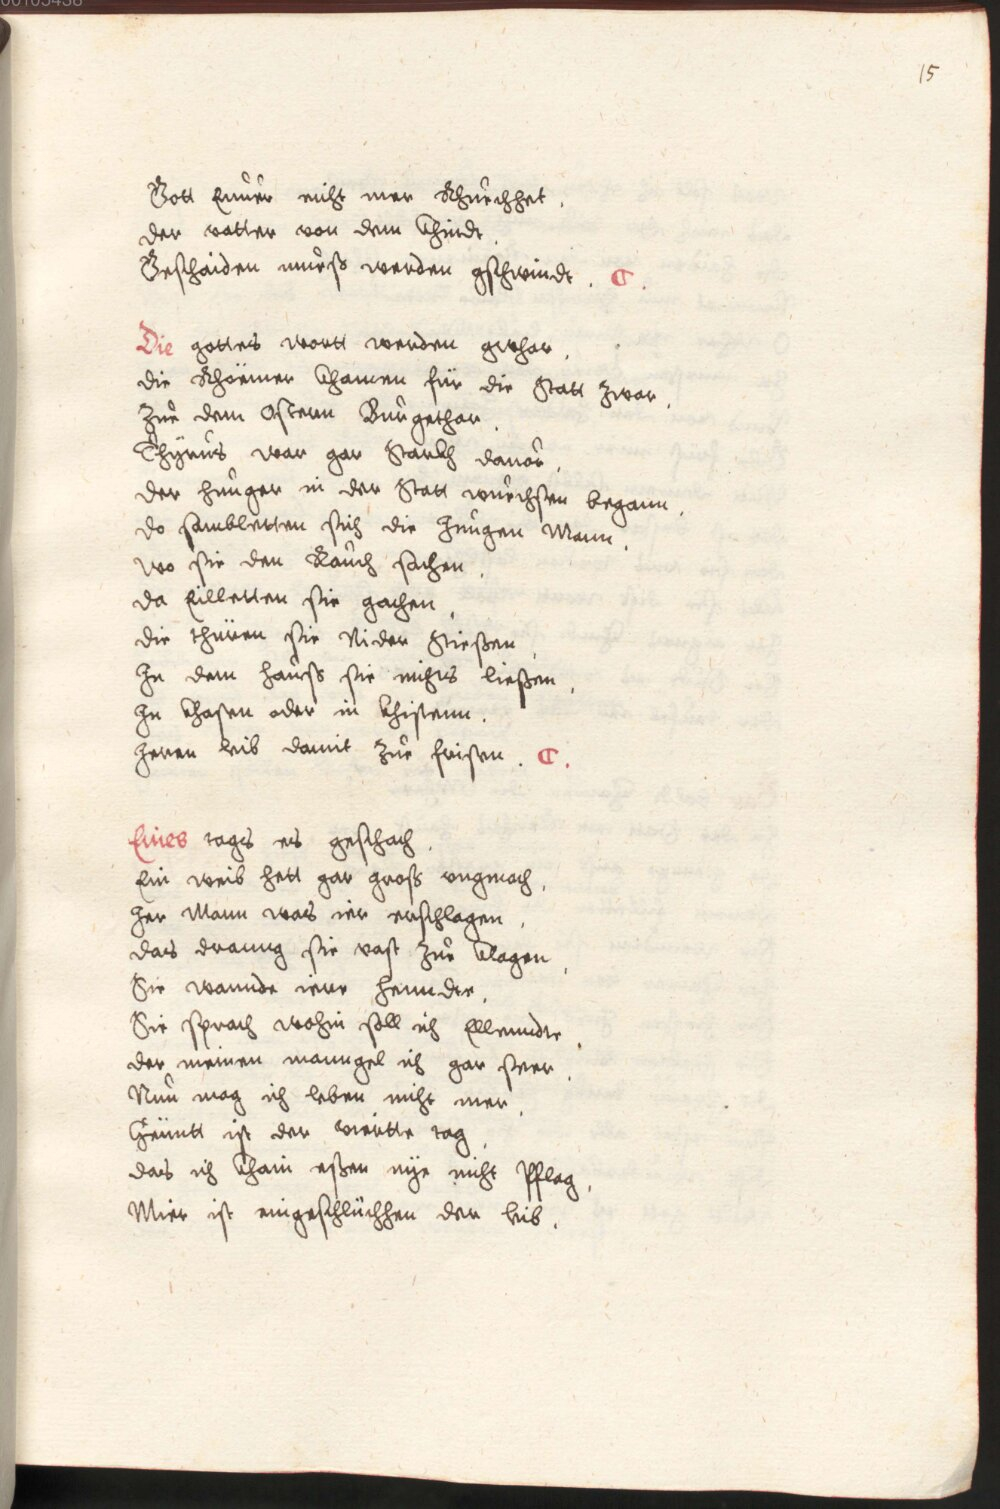 00105438
15
Gott Eurer nicht mer Rhuechhet.
der vatter von dem Khindt.
Geschaiden muess werden gschwindt. C.
Die gottes wortt werden gwhar.
die Rhoemer Khamen für die Statt zwar.
Zue dem Ostern Burgethar.
Thÿrus war gar Starkh dauor.
der hunger in der Statt wuechsen began.
do sambletten sich die Jungen Mann.
wo sie den Rauch sachen.
da Eilletten sie gachen.
die thüren sie Nider Stießen.
In dem hauss sie nichts ließen.
In Khasten oder in Khistenn.
Jeren leib damit zue fristen. C.
Eines tags es geschach.
Ein weib hett gar gross vngmach.
Jer Mann was ier erschlagen.
das dranng sie vast zue klagen.
Sie wannde iere henndte.
Sie sprach wohin soll ich Ellenndte.
der meinen manngel ich gar seer.
Nun mag ich leben nicht mer.
Heüntt ist der viertte tag.
das ich Khain essen nye nicht Pflag.
Mier ist eingeschlüchhen der leib.